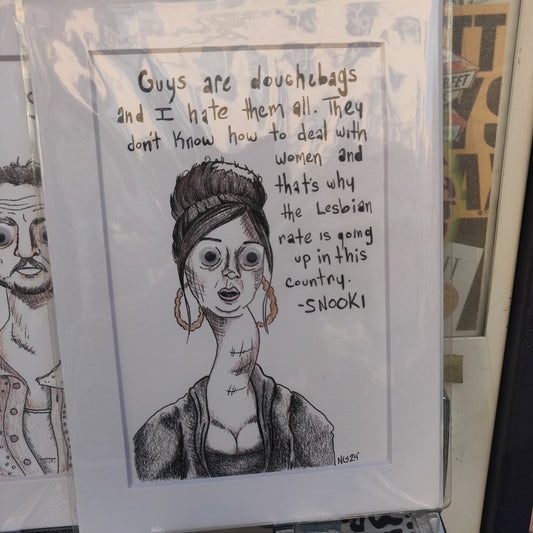 Guys are douchebags
and I hate them all. They
don't know how to deal with
women and
that's why
the Lesbian
rate is going
up in this
country.
-SNOOKI
NG 24'